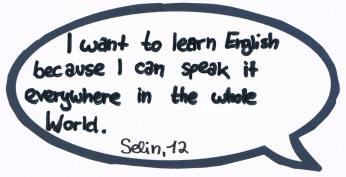 I want to learn English
because I can speak it
everywhere in the whole
World.
Selin, 12